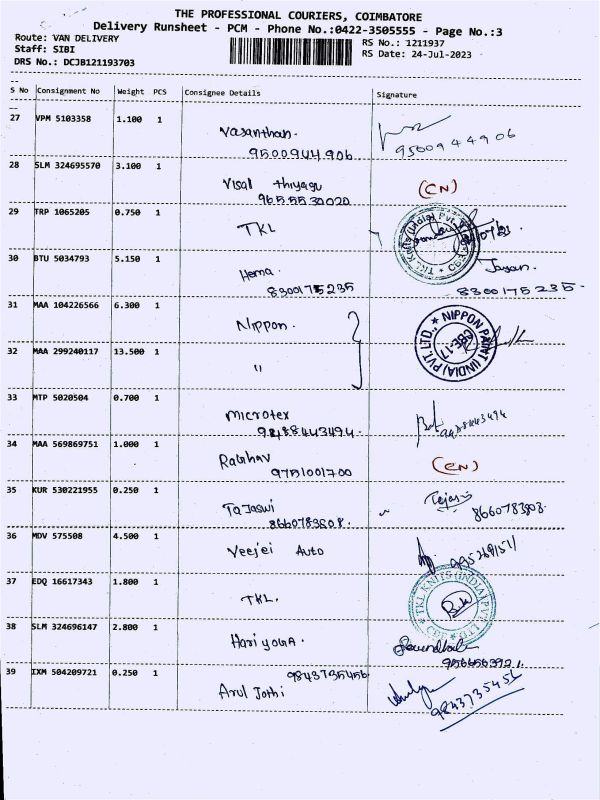 THE PROFESSIONAL COURIERS, COIMBATORE
Delivery Runsheet - PCM - Phone No.:0422-3505555 - Page No.:3
Route: VAN DELIVERY
RS No.: 1211937
Staff: SIBI
RS Date: 24-Jul-2023
DRS No.: DCJB121193703
S No Consignment No Weight PCS Consignee Details Signature
27 VPM 5103358 1.100 1
Vasanthan.
9500944906 9500944906
28 SLM 324695570 3.100 1
Visal thiyagu (CN)
9655530020
29 TRP 1065205 0.750 1
TKL
TKL Knits (India) Pvt.
30 BTU 5034793 5.150 1
Hema. Jayan.
8300175235 8300175235.
31 MAA 104226566 6.300 1
Nippon.
NIPPON PAINT (INDIA) PVT. LTD., ★
CBE-17
32 MAA 299240117 13.500 1
"
33 MTP 5020504 0.700 1
microtex
9488443494. 9488443494
34 MAA 569869751 1.000 1
Raghav (CN)
9751001700
35 KUR 530221955 0.250 1
Tajaswi Tejas
8660783808. 8660783803
36 MDV 575508 4.500 1
Veejei Auto
37 EDQ 16617343 1.800 1
TKL.
TKL KNITS (INDIA) PVT.
38 SLM 324696147 2.800 1
Hari yoga.
39 IXM 504209721 0.250 1
9843735456
Arul Jothi
9843735456